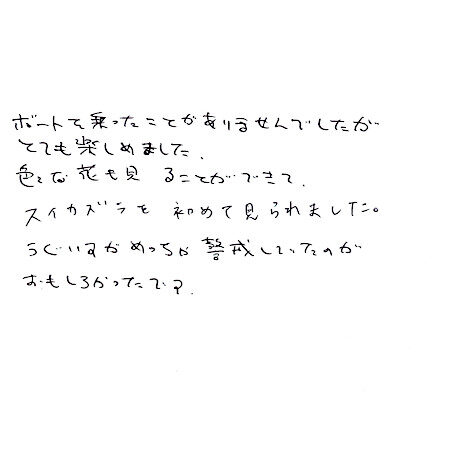 ボートを乗ったことがありませんでしたが
とても楽しめました.
色々な花も見ることができて.
スイカズラを初めて見られました。
うぐいすがめっちゃ警戒していたのが
おもしろかったです.